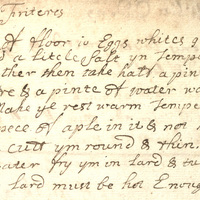 Friteres
of floor 10 Eggs whites
& a little salt yn Temper
ther then take half a pin
re & a pinte of water wa
Make ye rest warm Tempe
pece of aple in it & not
cutt ym round & thin
ater fry ym in lard & tu
lard must be hot Enoug